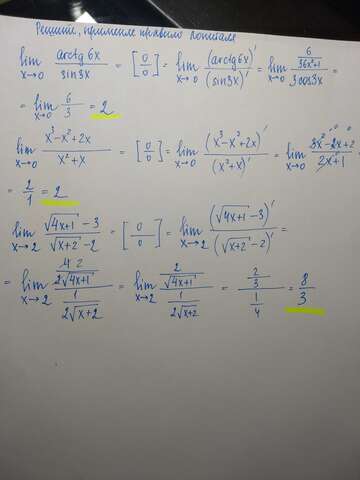 Решить, применяя правило Лопиталя
lim x→0 arctg6x / sin3x = [0/0] = lim x→0 (arctg6x)' / (sin3x)' = lim x→0 (6 / 36x²+1) / 3cos3x =
= lim x→0 6/3 = 2
lim x→0 x³-x²+2x / x²+x = [0/0] = lim x→0 (x³-x²+2x)' / (x²+x)' = lim x→0 3x²-2x+2 / 2x+1 =
= 2/1 = 2
lim x→2 √4x+1 -3 / √x+2 -2 = [0/0] = lim x→2 (√4x+1 -3)' / (√x+2 -2)' =
= lim x→2 (4 2 / 2√4x+1) / (1 / 2√x+2) = lim x→2 (2 / √4x+1) / (1 / 2√x+2) = (2/3) / (1/4) = 8/3